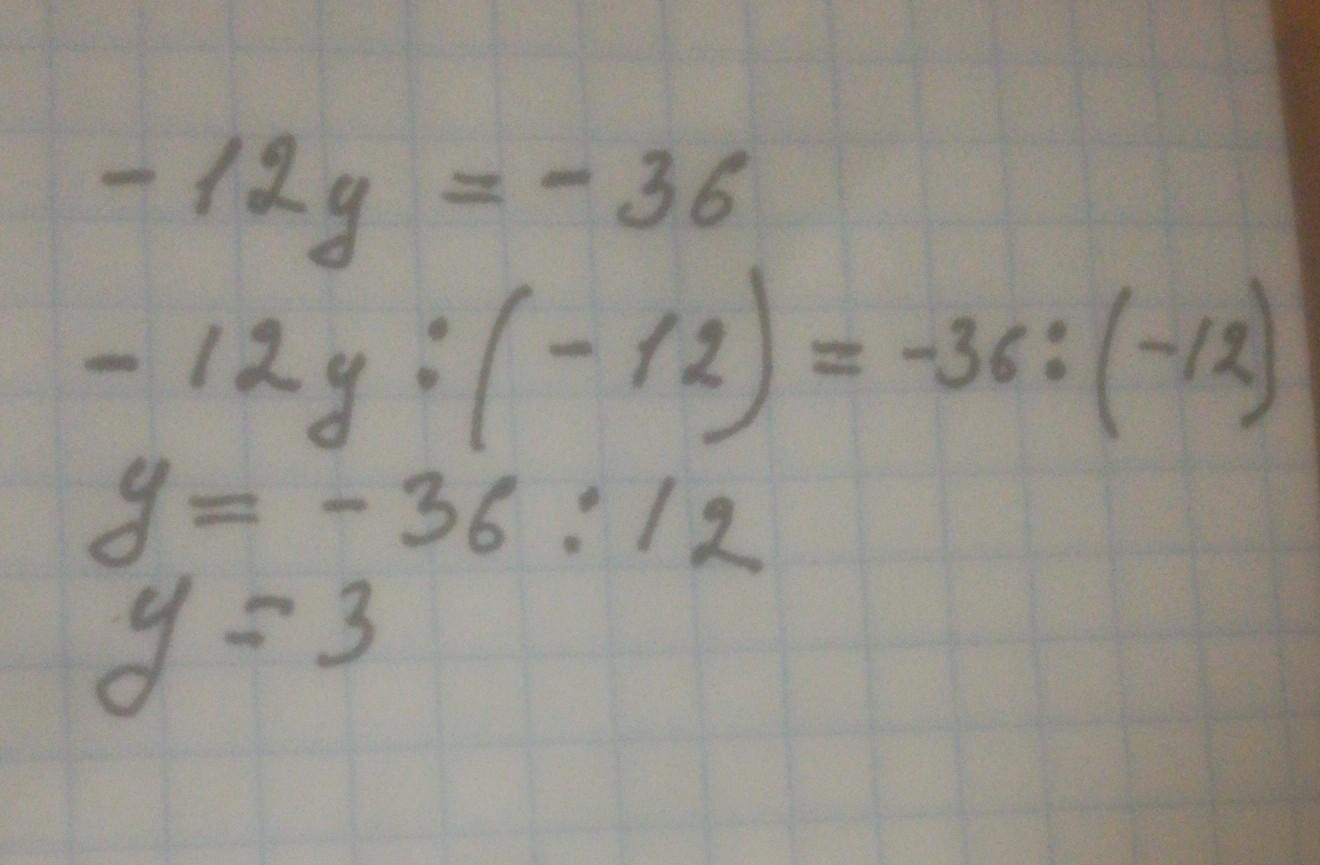 -12y = -36
-12y : (-12) = -36 : (-12)
y = -36 : 12
y = 3